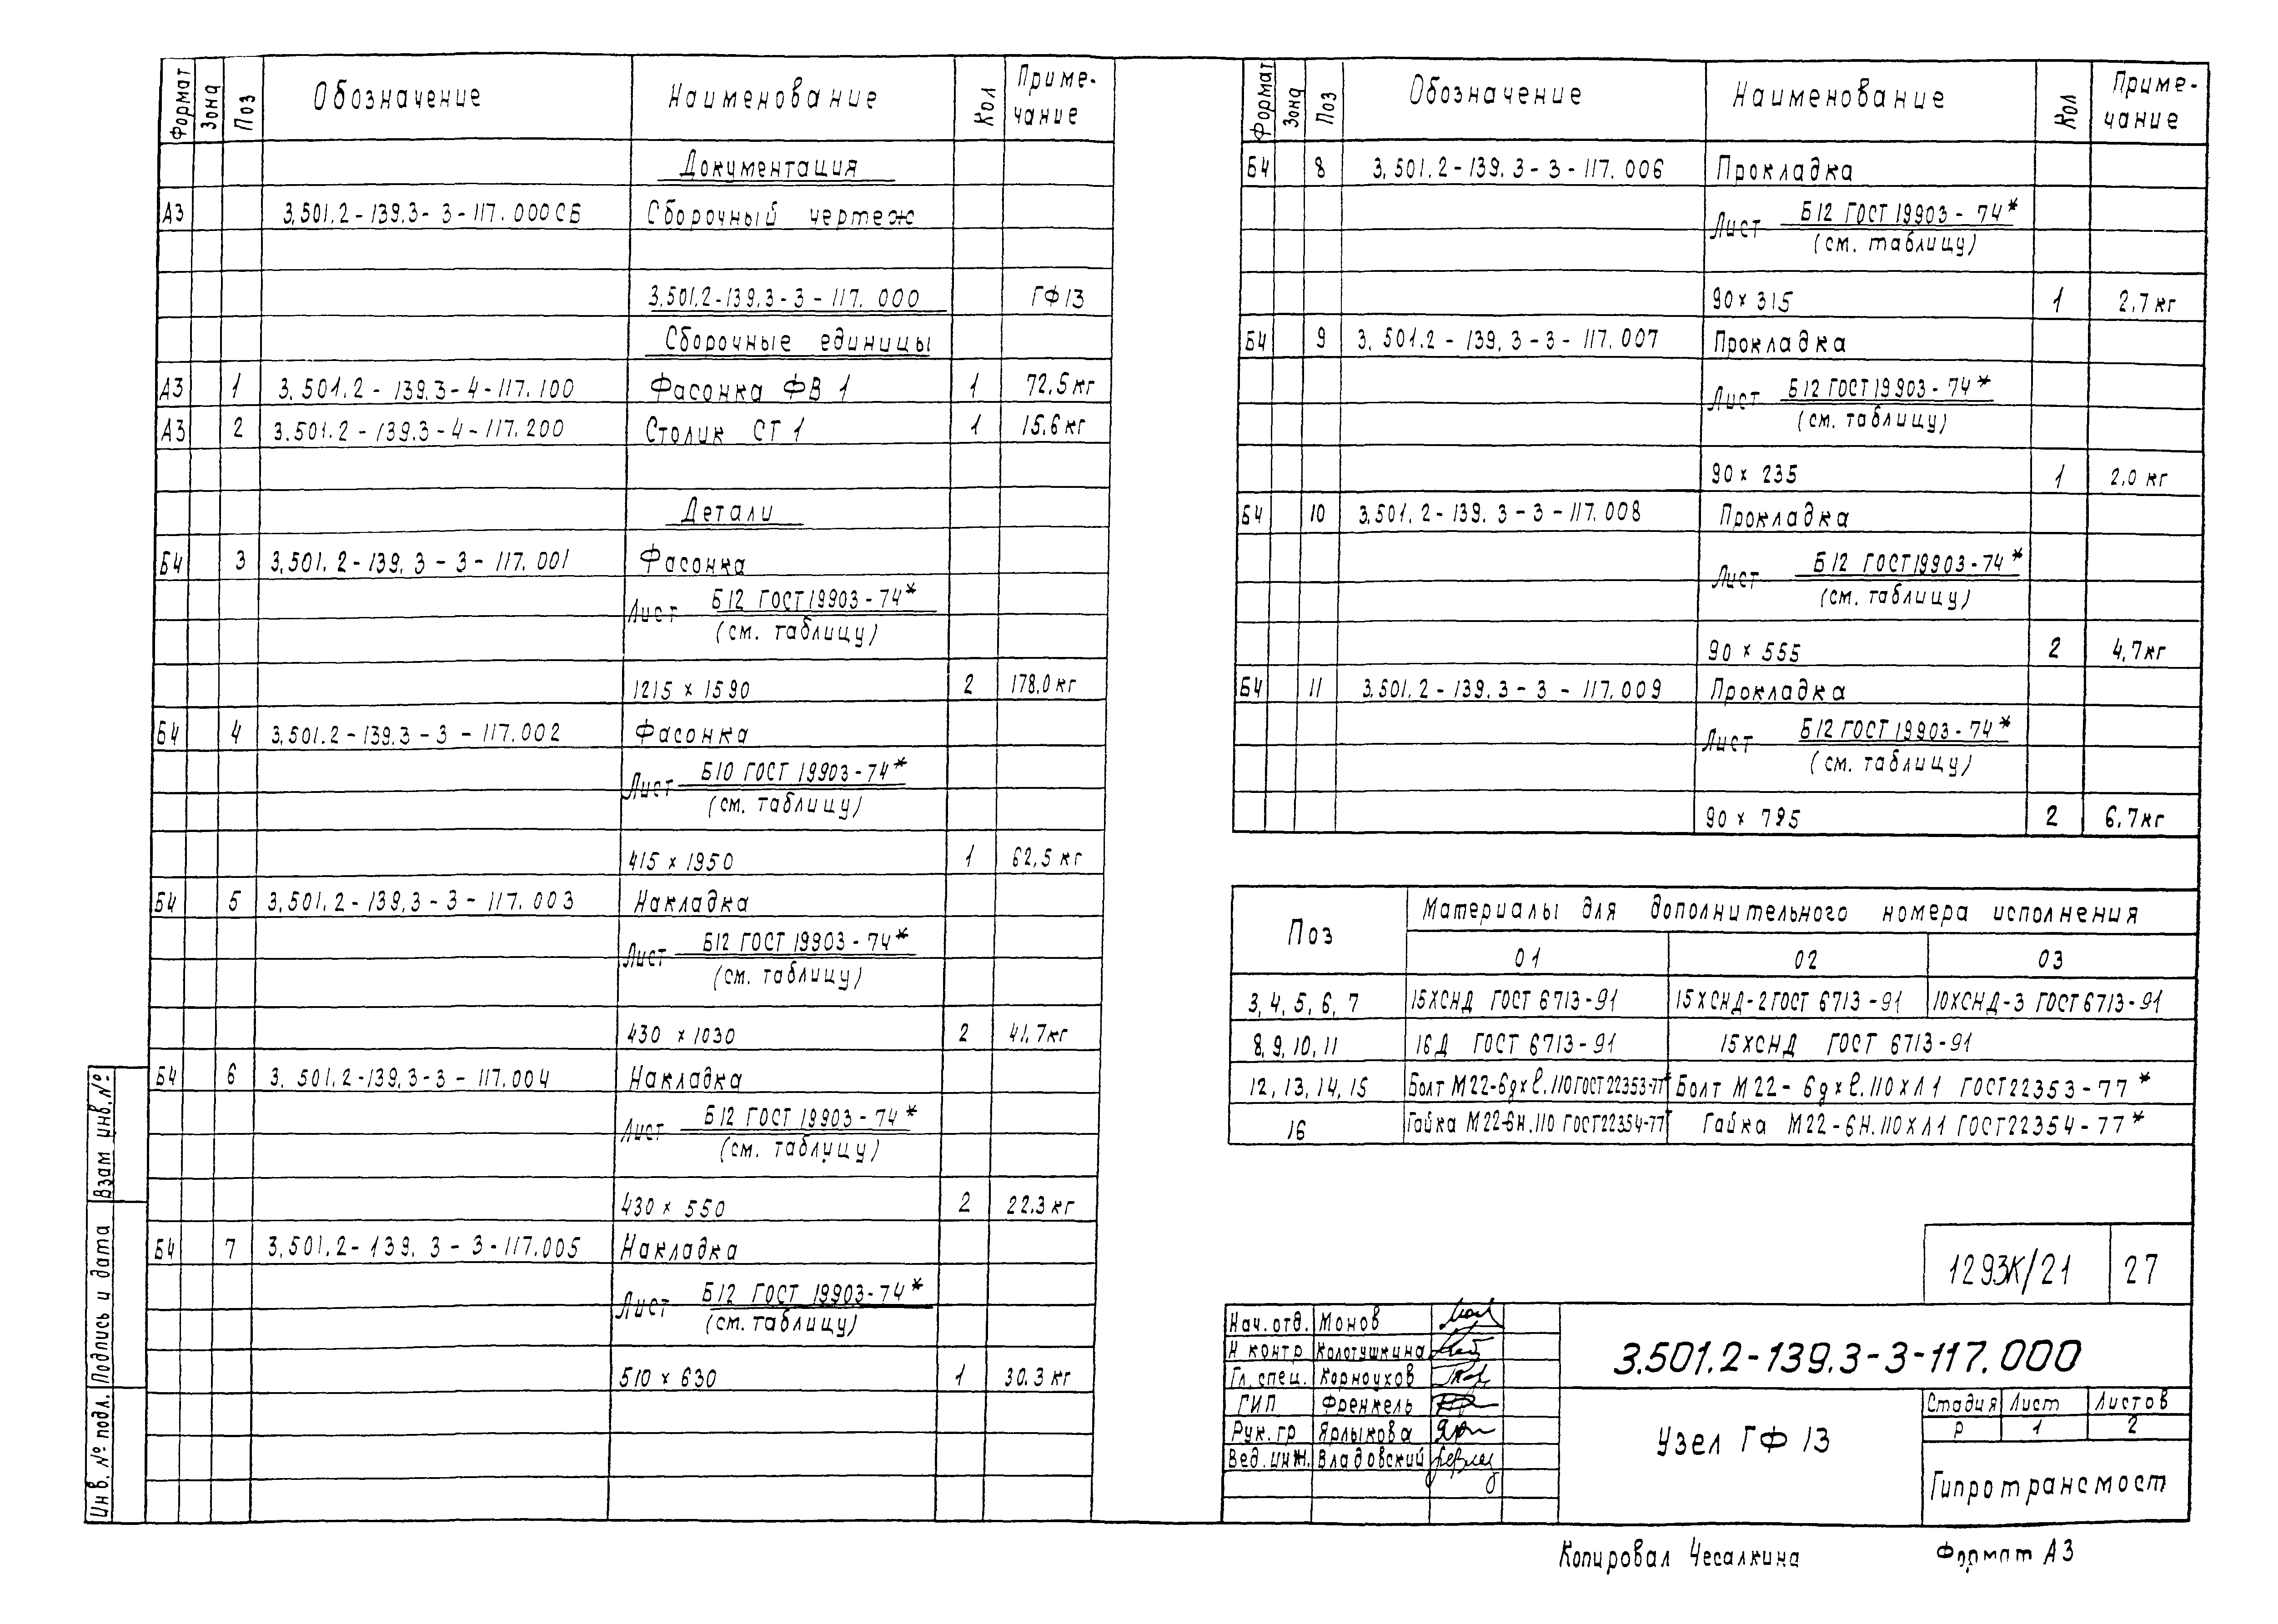 Формат Зона Поз Обозначение Наименование Кол Приме-
чание
Документация
А3 3.501.2-139.3-3-117.000СБ Сборочный чертеж
3.501.2-139.3-3-117.000 ГФ13
Сборочные единицы
А3 1 3.501.2-139.3-4-117.100 Фасонка ФВ 1 1 72.5 кг
А3 2 3.501.2-139.3-4-117.200 Столик СТ 1 1 15.6 кг
Детали
Б4 3 3.501.2-139.3-3-117.001 Фасонка
Лист Б12 ГОСТ 19903-74*
(см. таблицу)
1215 × 1590 2 178.0 кг
Б4 4 3.501.2-139.3-3-117.002 Фасонка
Лист Б10 ГОСТ 19903-74*
(см. таблицу)
415 × 1950 1 62.5 кг
Б4 5 3.501.2-139.3-3-117.003 Накладка
Лист Б12 ГОСТ 19903-74*
(см. таблицу)
430 × 1030 2 41.7 кг
Б4 6 3.501.2-139.3-3-117.004 Накладка
Лист Б12 ГОСТ 19903-74*
(см. таблицу)
430 × 550 2 22.3 кг
Б4 7 3.501.2-139.3-3-117.005 Накладка
Лист Б12 ГОСТ 19903-74*
(см. таблицу)
510 × 630 1 30.3 кг
Взам инв. №
Подпись и дата
Инв. № подл.
Формат Зона Поз Обозначение Наименование Кол Приме-
чание
Б4 8 3.501.2-139.3-3-117.006 Прокладка
Лист Б12 ГОСТ 19903-74*
(см. таблицу)
90 × 315 1 2.7 кг
Б4 9 3.501.2-139.3-3-117.007 Прокладка
Лист Б12 ГОСТ 19903-74*
(см. таблицу)
90 × 235 1 2.0 кг
Б4 10 3.501.2-139.3-3-117.008 Прокладка
Лист Б12 ГОСТ 19903-74*
(см. таблицу)
90 × 555 2 4.7 кг
Б4 11 3.501.2-139.3-3-117.009 Прокладка
Лист Б12 ГОСТ 19903-74*
(см. таблицу)
90 × 795 2 6.7 кг
Поз Материалы для дополнительного номера исполнения
01 02 03
3, 4, 5, 6, 7 15ХСНД ГОСТ 6713-91 15ХСНД-2 ГОСТ 6713-91 10ХСНД-3 ГОСТ 6713-91
8, 9, 10, 11 16Д ГОСТ 6713-91 15ХСНД ГОСТ 6713-91
12, 13, 14, 15 Болт М22-6g×ℓ.110 ГОСТ 22353-77* Болт М22-6g×ℓ.110ХЛ1 ГОСТ 22353-77*
16 Гайка М22-6Н.110 ГОСТ 22354-77* Гайка М22-6Н.110ХЛ1 ГОСТ 22354-77*
1293К/21 27
Нач. отд. Монов
Н контр Колотушкина
Гл. спец. Корноухов
ГИП Френкель
Рук. гр Ярлыкова
Вед. инж. Владовский
3.501.2-139.3-3-117.000
Узел ГФ 13
Стадия Лист Листов
Р 1 2
Гипротрансмост
Копировал Чесалкина Формат А3